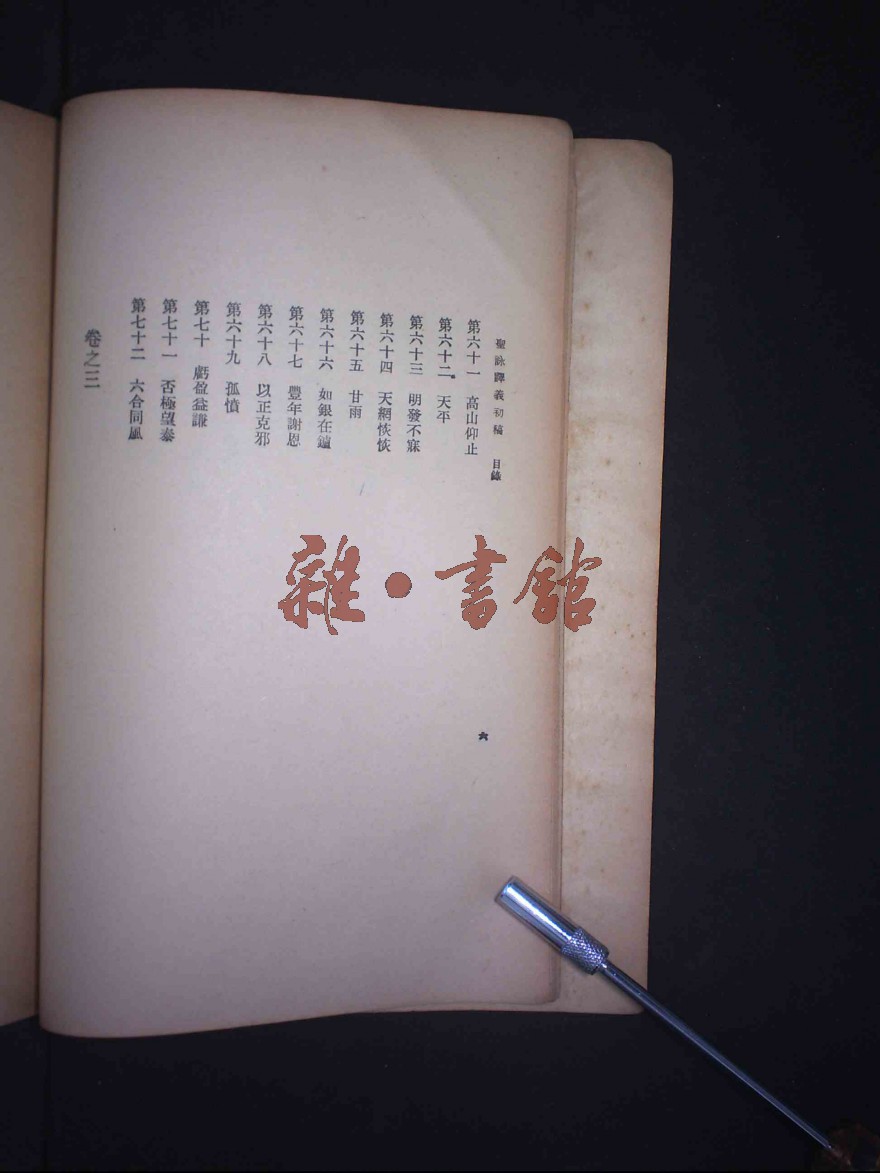 聖詠譯義初稿　目錄
第六十一　高山仰止
第六十二　天平
第六十三　明發不寐
第六十四　天網恢恢
第六十五　甘雨
第六十六　如銀在鑪
第六十七　豐年謝恩
第六十八　以正克邪
第六十九　孤憤
第七十　虧盈益謙
第七十一　否極望泰
第七十二　六合同風
卷之三
六
雜・書館